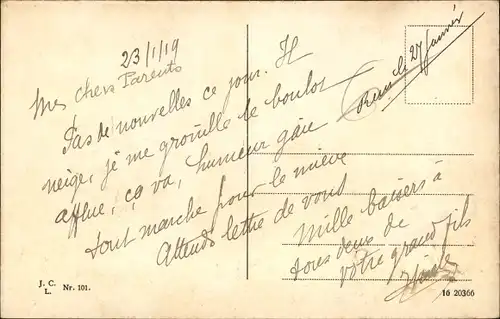 23/1/19
Mes chers Parents
Pas de nouvelles ce jour. Il
neige, je me grouille le boulot
afflue, ça va, humeur gaie
tout marche pour le mieux
Attends lettre de vous
Mille baisers à
tous deux de
votre grand fils
Reçu le 27 Janvier
J. C.
L. Nr. 101.
16 20366